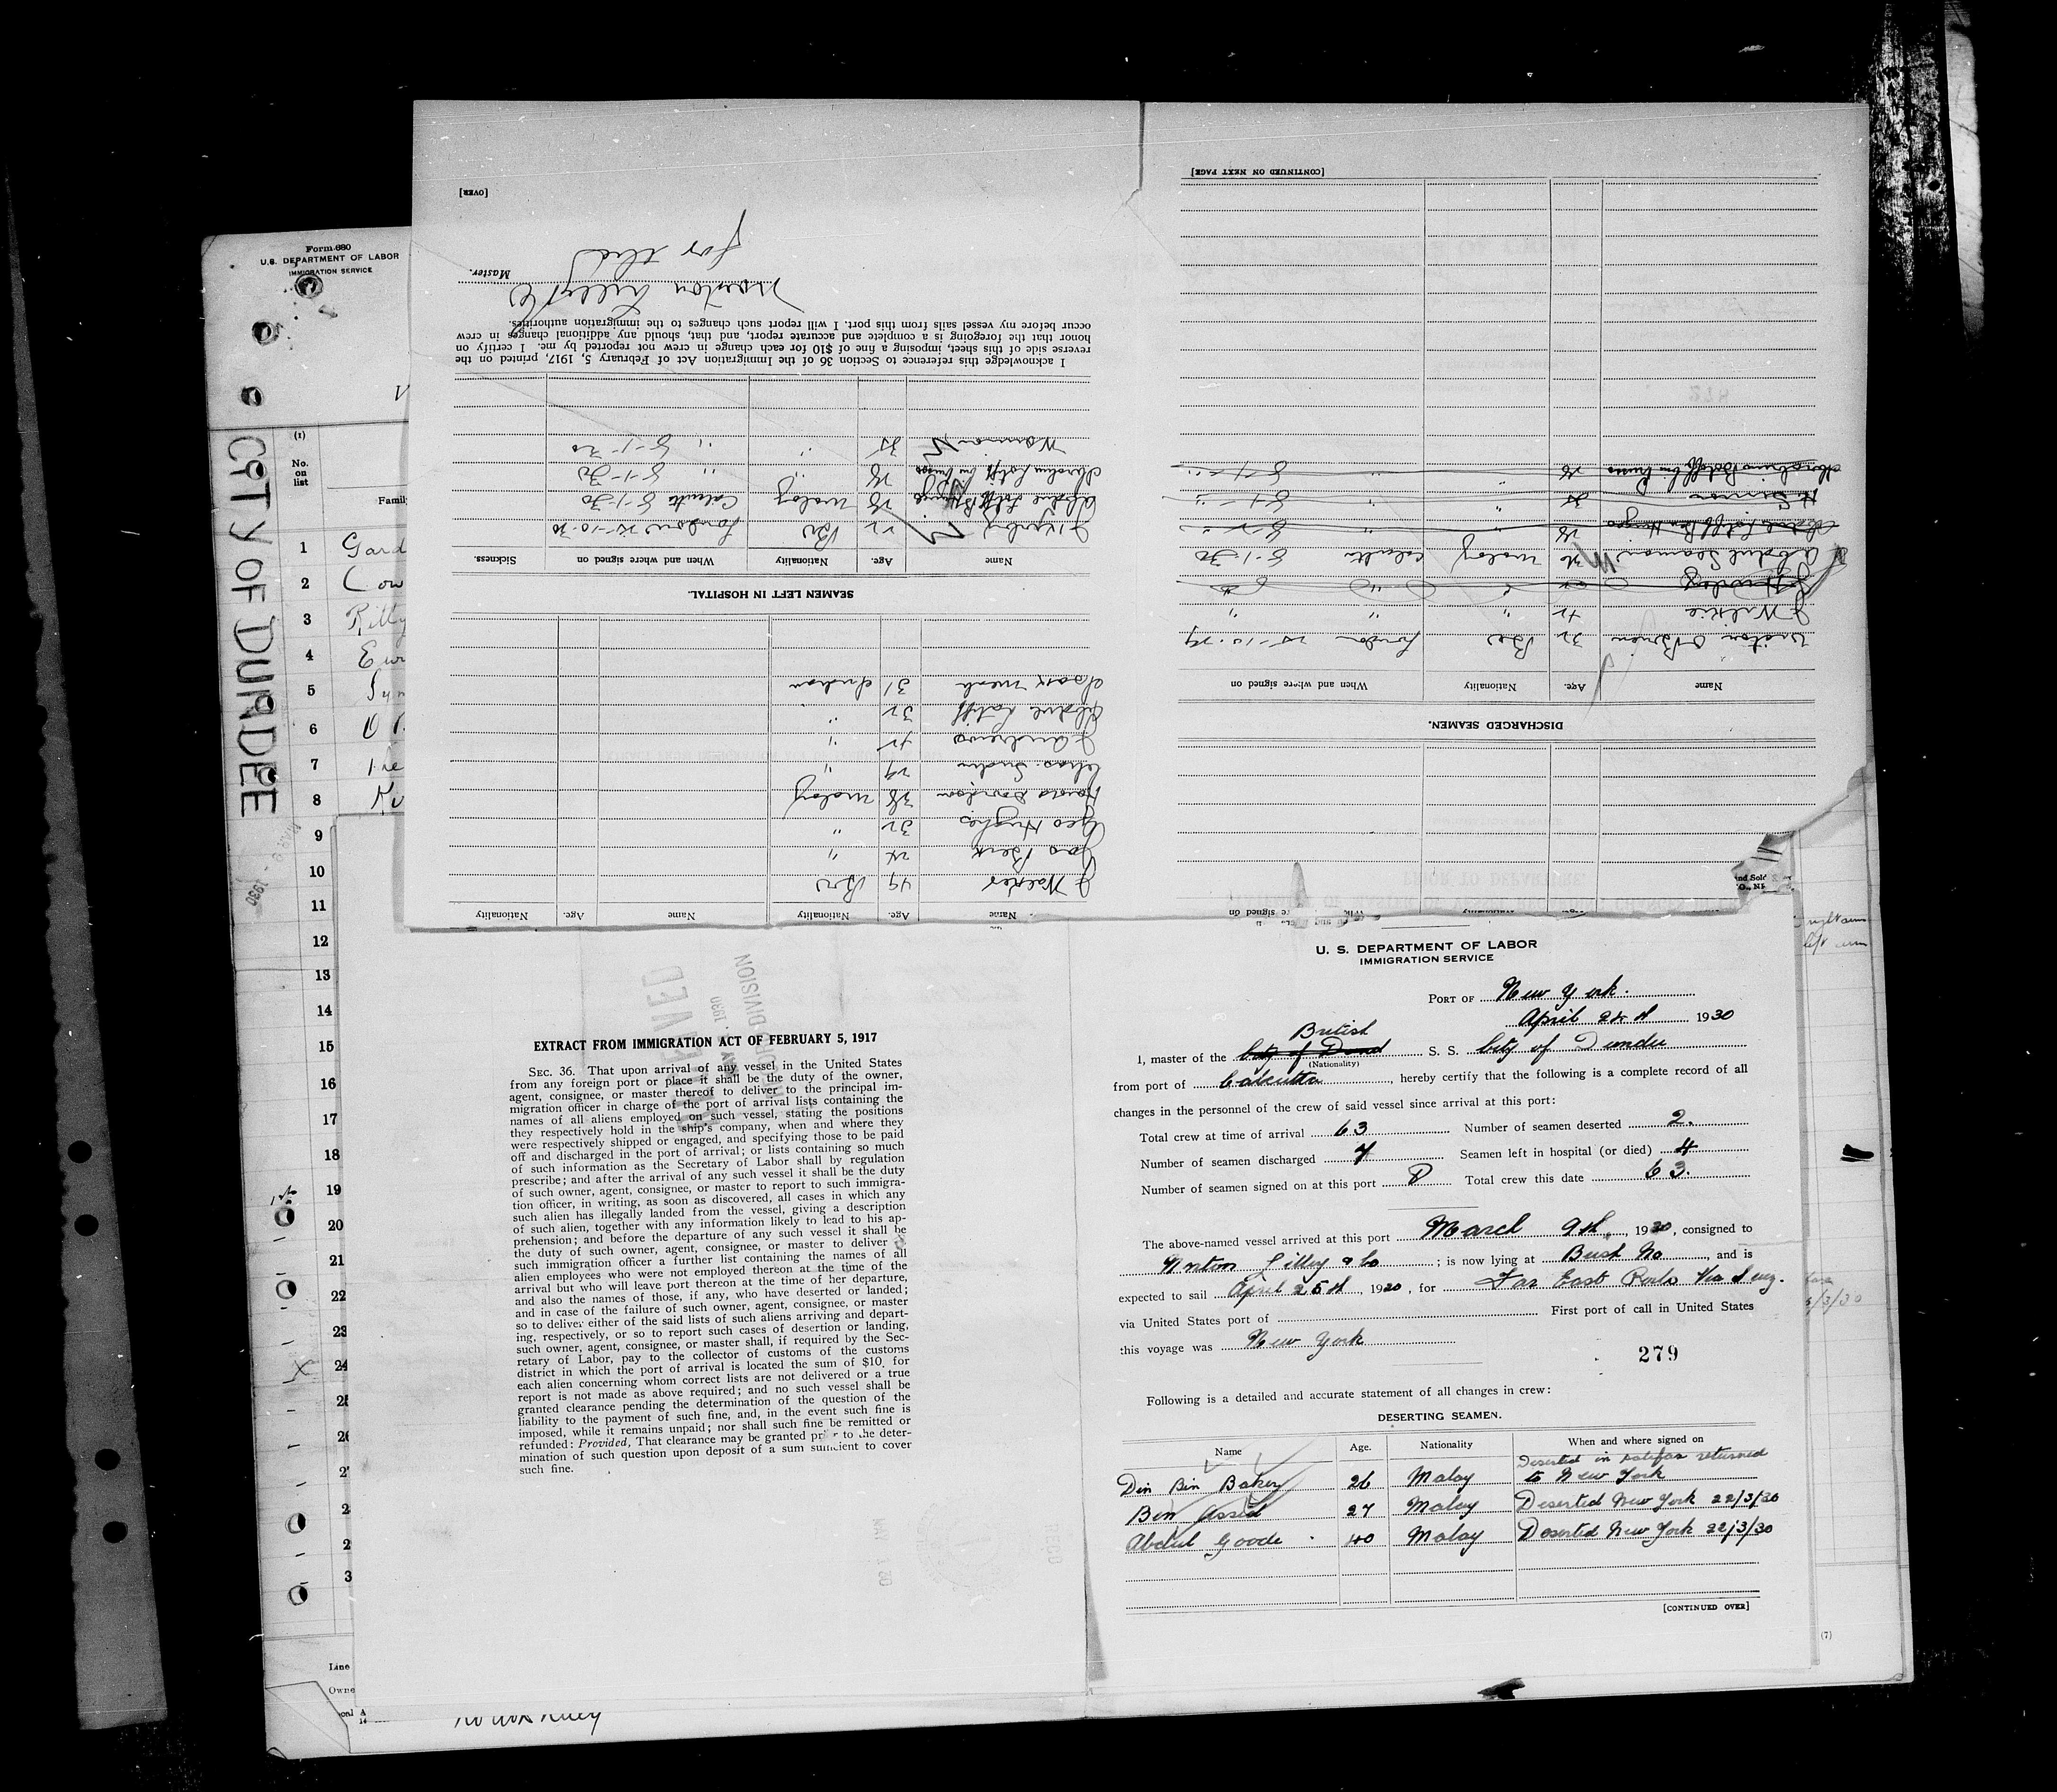 Form 680
U.S. DEPARTMENT OF LABOR
IMMIGRATION SERVICE
CITY OF DUNDEE
(1)
No.
on
list
Famil
1 Gard
2 Cow
3 Rilly
4
5
6
7
8
9
10
11
12
13
14
15
16
17
18
19
20
21
22
23
24
Line
Owne
[OVER]
for the
Norton Lilly & Co
Master.
I acknowledge this reference to Section 36 of the Immigration Act of February 5, 1917, printed on the
reverse side of this sheet, imposing a fine of $10 for each change in crew not reported by me. I certify on
honor that the foregoing is a complete and accurate report, and that, should any additional changes in crew
occur before my vessel sails from this port. I will report such changes to the immigration authorities.
Name Age. Nationality Name Age. Nationality
J Walker 49 Brs
Jas Beck 24 "
Geo Hughes 32 "
Harold Davidson 38 Malay
Chas. Sudin 29 "
J Andrews 42 "
Abdul Latiff 32 "
31 Indian
SEAMEN LEFT IN HOSPITAL.
Name Age. Nationality When and where signed on Sickness.
22 Brs London 25-10-30
28 Malay Calcutta 8-1-30
28 " " 8-1-30
Noman 35 " " 8-1-30
DISCHARGED SEAMEN.
Name Age. Nationality When and where signed on
O'Brien 32 Brs London 25-10-29
J Wilkie 42 " " "
Abdul Seaman 36 Malay Calcutta 8-1-30
[CONTINUED ON NEXT PAGE]
EXTRACT FROM IMMIGRATION ACT OF FEBRUARY 5, 1917
SEC. 36. That upon arrival of any vessel in the United States
from any foreign port or place it shall be the duty of the owner,
agent, consignee, or master thereof to deliver to the principal im-
migration officer in charge of the port of arrival lists containing the
names of all aliens employed on such vessel, stating the positions
they respectively hold in the ship's company, when and where they
were respectively shipped or engaged, and specifying those to be paid
off and discharged in the port of arrival; or lists containing so much
of such information as the Secretary of Labor shall by regulation
prescribe; and after the arrival of any such vessel it shall be the duty
of such owner, agent, consignee, or master to report to such immigra-
tion officer, in writing, as soon as discovered, all cases in which any
such alien has illegally landed from the vessel, giving a description
of such alien, together with any information likely to lead to his ap-
prehension; and before the departure of any such vessel it shall be
the duty of such owner, agent, consignee, or master to deliver to
such immigration officer a further list containing the names of all
alien employees who were not employed thereon at the time of the
arrival but who will leave port thereon at the time of her departure,
and also the names of those, if any, who have deserted or landed;
and in case of the failure of such owner, agent, consignee, or master
so to deliver either of the said lists of such aliens arriving and depart-
ing, respectively, or so to report such cases of desertion or landing,
such owner, agent, consignee, or master shall, if required by the Sec-
retary of Labor, pay to the collector of customs of the customs
district in which the port of arrival is located the sum of $10 for
each alien concerning whom correct lists are not delivered or a true
report is not made as above required; and no such vessel shall be
granted clearance pending the determination of the question of the
liability to the payment of such fine, and, in the event such fine is
imposed, while it remains unpaid; nor shall such fine be remitted or
refunded: Provided, That clearance may be granted prior to the deter-
mination of such question upon deposit of a sum sufficient to cover
such fine.
U. S. DEPARTMENT OF LABOR
IMMIGRATION SERVICE
PORT OF New York.
April 24th 1930
British
I, master of the City of Dund S. S. City of Dundee
(Nationality)
from port of Calcutta, hereby certify that the following is a complete record of all
changes in the personnel of the crew of said vessel since arrival at this port:
Total crew at time of arrival 63 Number of seamen deserted 2.
Number of seamen discharged 7 Seamen left in hospital (or died) 4
Number of seamen signed on at this port 8 Total crew this date 63.
The above-named vessel arrived at this port March 9th, 1930, consigned to
Norton Lilley & Co; is now lying at Bush No, and is
expected to sail April 25th, 1930, for Far East Ports Via Suez.
via United States port of First port of call in United States
this voyage was New York
279
Following is a detailed and accurate statement of all changes in crew:
DESERTING SEAMEN.
Name Age. Nationality When and where signed on
Din Bin Baker 26 Malay Deserted in Halifax returned
to New York
Ben Assid 27 Malay Deserted New York 22/3/30
Abdul Goode 40 Malay Deserted New York 22/3/30
[CONTINUED OVER]
(7)